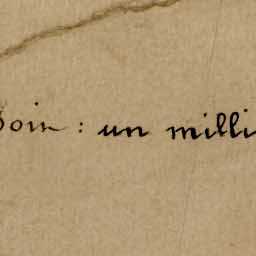 soin : un milli